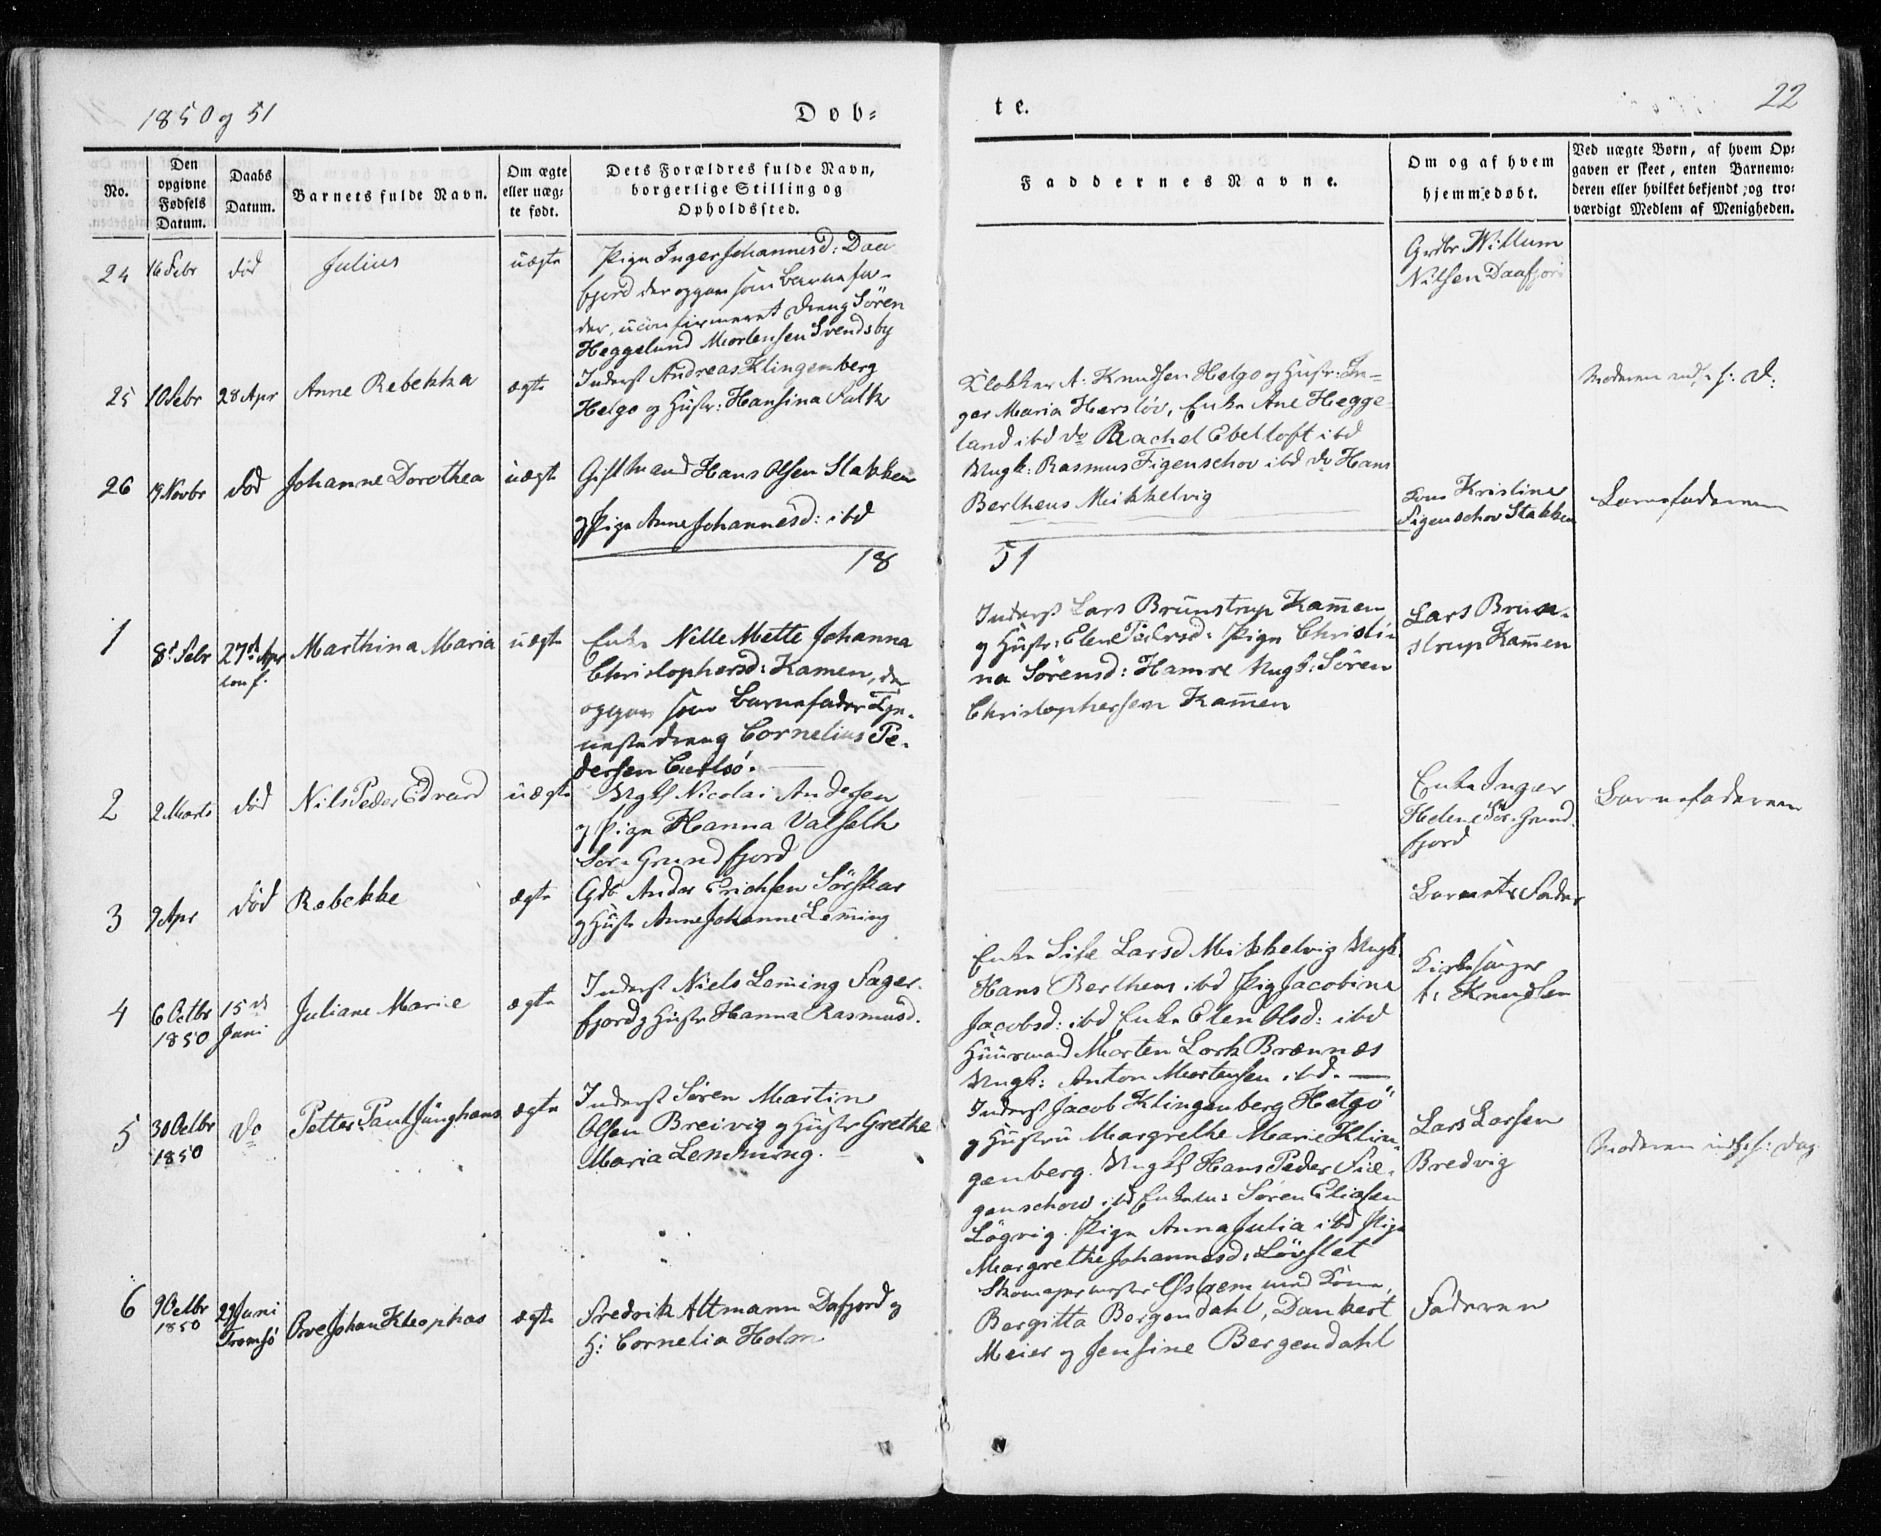 1850 og 51
Døb-
te.
22
No.
Den opgivne Fødsels Datum.
Daabs Datum.
Barnets fulde Navn.
Om ægte eller uæg-te født.
Dets Forældres fulde Navn, borgerlige Stilling og Opholdssted.
Faddernes Navne.
Om og af hvem hjemmedøbt.
Ved uægte Børn, af hvem Op-gaven er skeet, enten Barnemo-deren eller hvilket bekjendt, og tro-værdigt Medlem af Menigheden.
24
16 Febr
død
Julius
uægte
Pige Inger Johannesd: Daa
fjord der opgav som barnefa-
der, uconfirmeret dreng Søren
Heggelund Mortensen Svendsby
Grdbr Willum
Nilsen Daafjord
25
10 Febr
28 Apr
Anne Rebekka
ægte
Inderst Andreas Klingenberg
Helgø og Hustr: Hansina Falk
Klokker A. Knudsen Helgø og Hustr: In-
ger Maria Hersløv, Enke Ane Hegge-
land ibd do Rachel Ebeltoft ibd
Ungk: Rasmus Figenschov ibd do Hans
Berthens Mikkelvig
Moderen
26
19 Novbr
død
Johanne Dorothea
uægte
Gift Mand Hans Olsen Stakken
og Pige Anne Johannesd: ibd
Kone Kristine
Figenschov Stakken
Barnefaderen
18
51
1
8d Febr
27d Apr
conf.
Marthina Maria
uægte
Enke Nille Mette Johanna
Christophersd: Kamen, der
opgav som barnefader Tje-
nestedreng Cornelius Pe-
dersen Carlsø.
Inderst Lars Brunstrup Kam̄en
og Hustr: Elen Pedersd: Pige Christi-
na Sørensd: Hamre Ungk: Søren
Christophersen Kam̄en
Lars Brun-
strup Kam̄en
2
2 Marts
død
Nils Peder Edvard
uægte
Ungk Nicolai Andersen
og Pige Hanna Valseth
Sør-Grundfjord
Enke Inger
Helene Sør-Grund-
fjord
Barnefaderen
3
9 Apr
død
Rebekke
ægte
Gdb. Anders Erichsen Sørskar
og Hustr Anne Johanne Lem̄ing
Barnets Fader
4
6 Octbr
1850
15de
Juni
Juliane Marie
ægte
Inderst Niels Lem̄ing Sager-
fjord og Hustr Hanna Rasmusd.
Enke Sile Larsd Mikkelvig Ungk.
Hans Berthens ibd Pig Jacobine
Jacobsd: ibd Enke Elen Olsd: ibd
Huusmand Morten Lork Brænnæs
Ungk: Anton Mortensen ibd.
Kirkesanger
A: Knudsen
5
30 Octbr
1850
do
Petter Paul Junghans
ægte
Inderst Søren Martin
Olsen Breivig og Hustr Grethe
Maria Lemming.
Inderst Jacob Klingenberg Helgø
og Hustru Margrethe Marie Klin-
genberg. Ungk Hans Peder Fie-
genschow ibd Enkem: Søren Eliasen
Løgvig. Pige Anna Julia ibd Pige
Margrethe Johannesd: Løvslet
Lars Larsen
Bredvig
Moderen
6
9 Octbr
1850
29 Juni
Tromsø
Ove Johan Kleophas
ægte
Fredrik Altmann Dafjord og
H: Cornelia Holm
Skomagermester Østrem med Kone,
Bergitta Bergendahl, Dankert
Meier og Jensine Bergendahl
Faderen